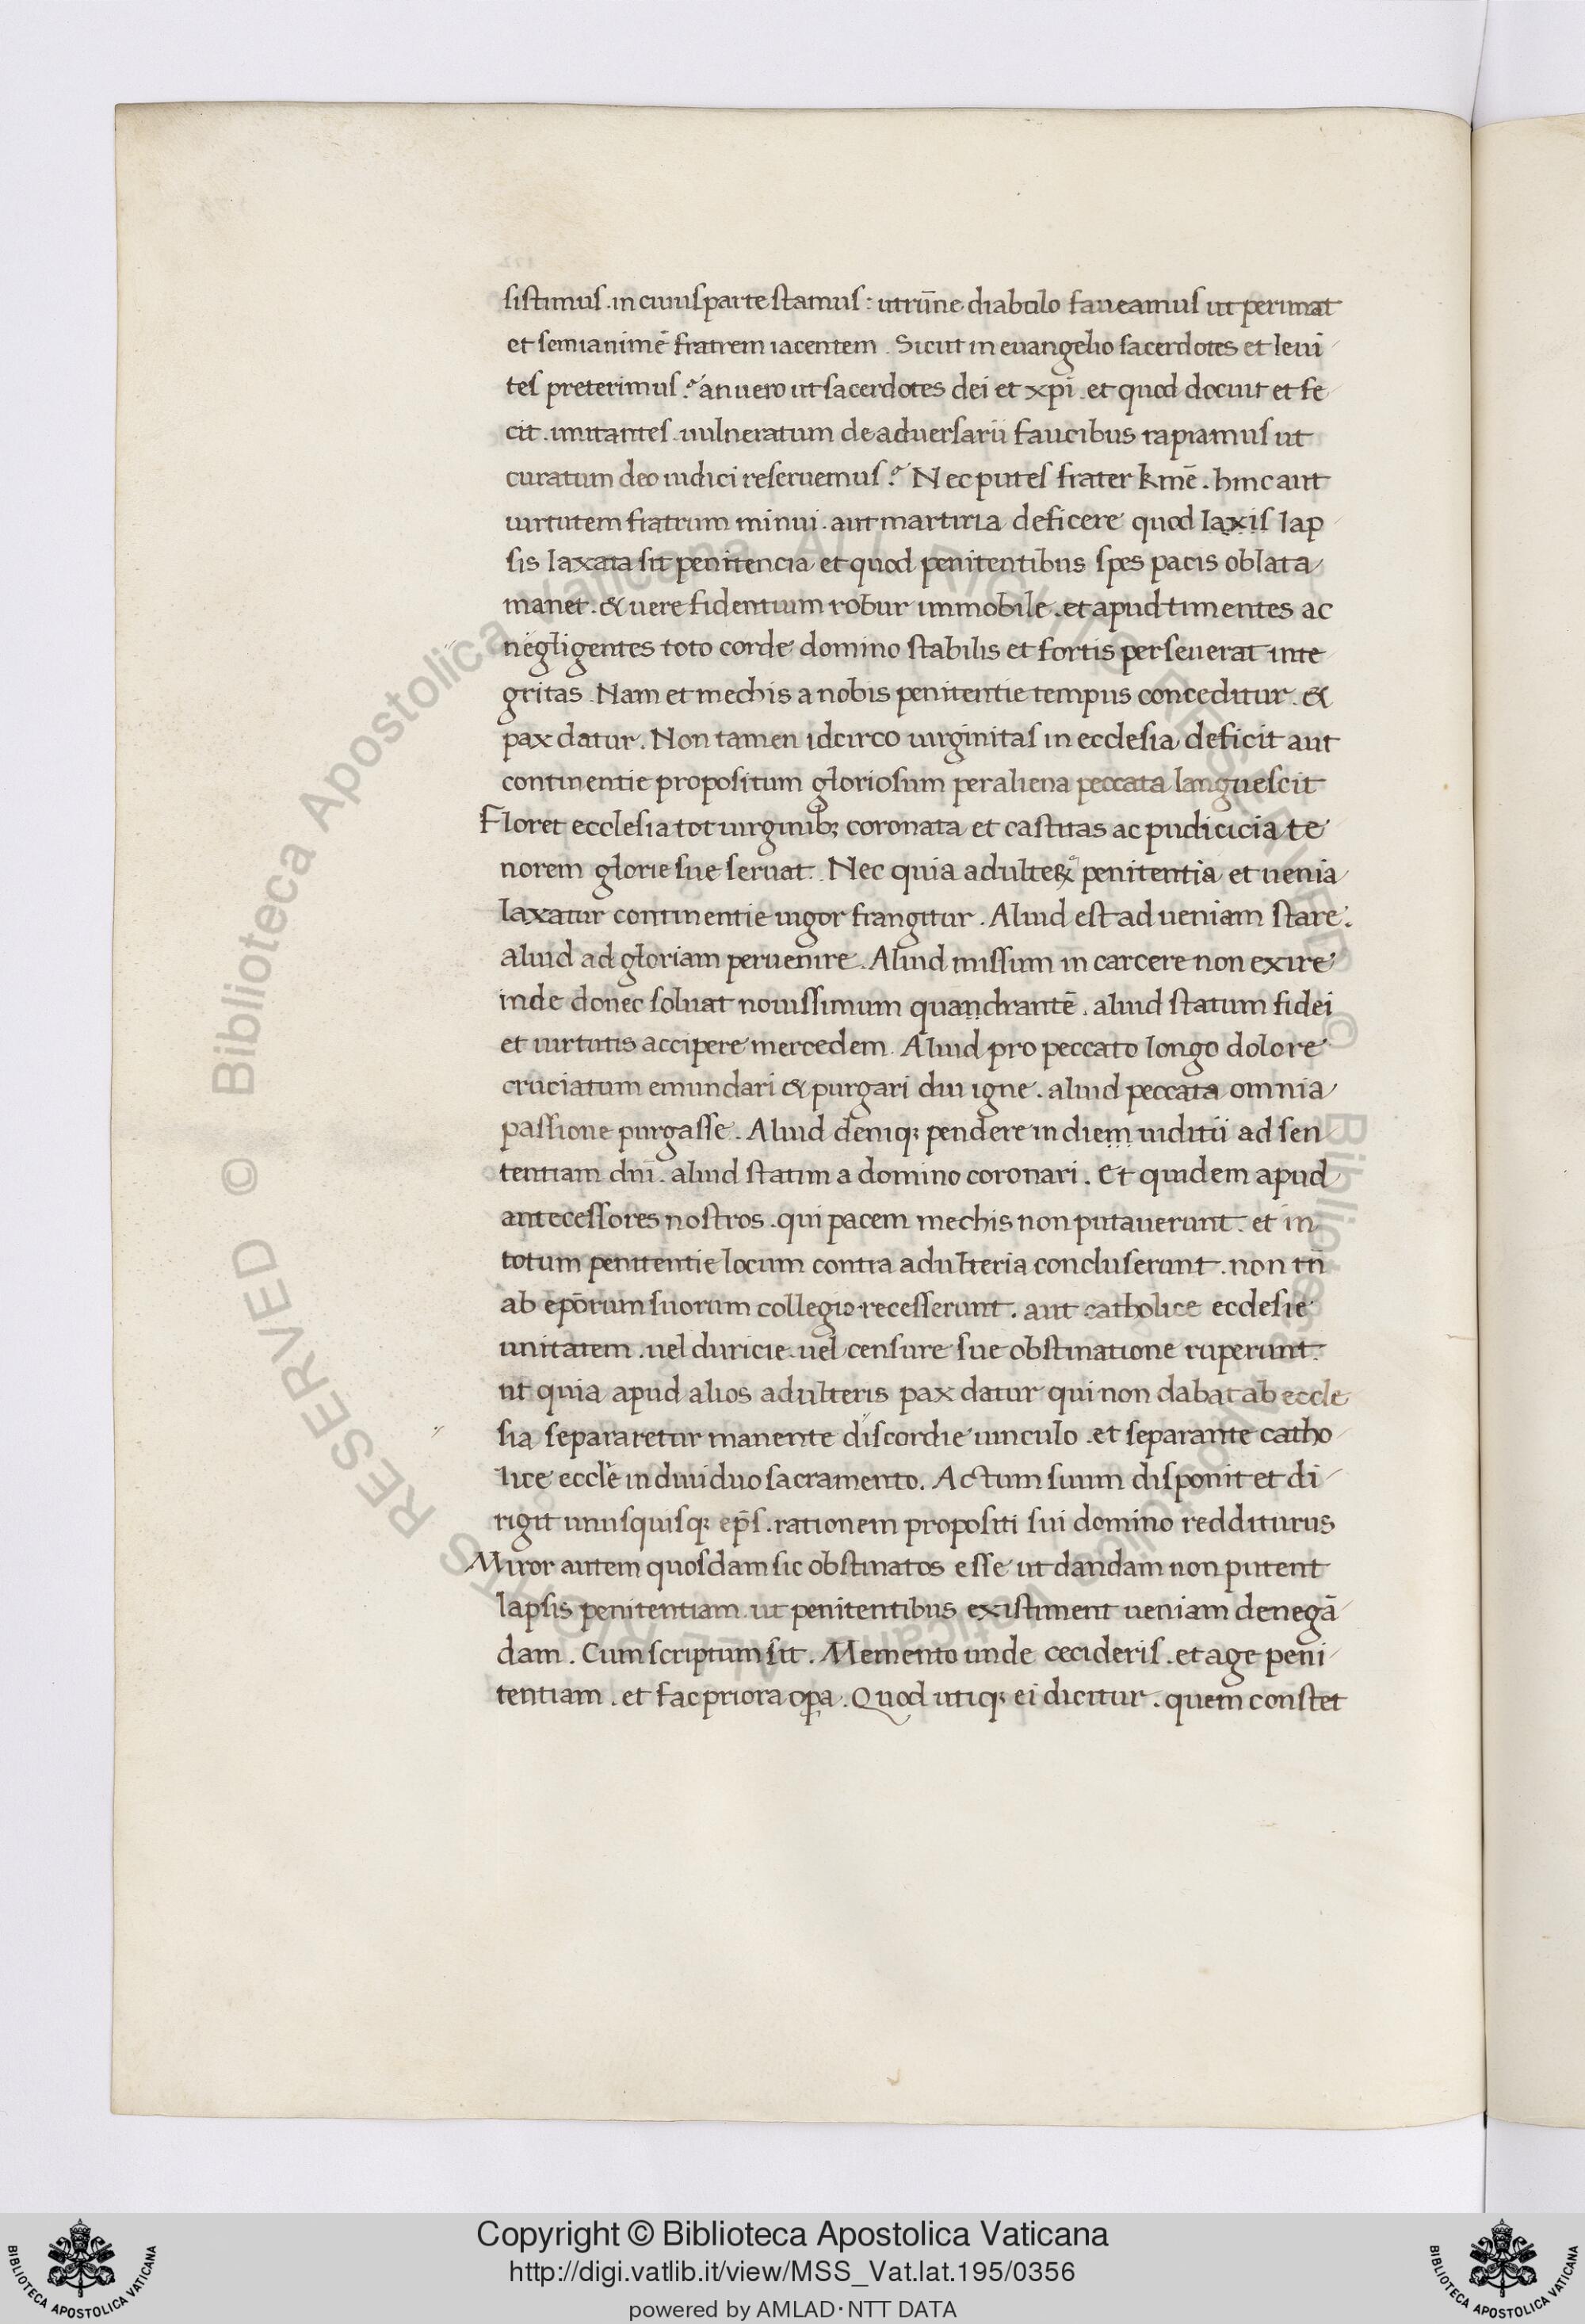 sistimus . in cuius parte stamus : utrūne diabolo faveamus ut perimat
et semianimē fratrem iacentem . Sicut in euangelio sacerdotes et leui
tes preterimus ? an uero ut sacerdotes dei et xp̄i . et quod docuit et fe
cit . imitantes . uulneratum de adversarii faucibus rapiamus ut
curatum deo iudici reservemus ? Nec putes frater kmē . hinc aut
uirtutem fratrum minui . aut martiria deficere quod laxis lap
sis laxata sit penitencia et quod penitentibus spes pacis oblata
manet . & uere fidentium robur immobile . et apud timentes ac
négligentes toto corde domino stabilis et fortis perseuerat inte
gritas . Nam et mechis a nobis penitentie tempus conceditur . &
pax datur . Non tamen idcirco uirginitas in ecclesia deficit aut
continentie propositum gloriosum per aliena peccata languescit
Floret ecclesia tot uirginib; coronata et castitas ac pudicicia te
norem glorie sue seruat . Nec quia adulteꝝ penitentia et uenia
laxatur continentie uigor frangitur . Aliud est ad ueniam stare .
aliud ad gloriam pervenire . Aliud missum in carcere non exire
inde donec soluat novissimum quandrantē . aliud statum fidei
et uirtutis accipere mercedem . Aliud pro peccato longo dolore
cruciatum emundari & purgari diu igne . aliud peccata omnia
passione purgasse . Aliud deniq; pendere in diem iuditii ad sen
tentiam dn̄i . aliud statim a domino coronari . Et quidem apud
antecessores nostros . qui pacem mechis non putaverunt . et in
totum penitentie locum contra adulteria concluserunt . non tn̄
ab ep̄orum suorum collegio recesserunt . aut catholice ecclesie
unitatem . uel duricie . uel censure sue obstinatione ruperunt .
ut quia apud alios adulteris pax datur qui non dabat ab eccle
sia separaretur manente discordie uinculo . et separante catho
lice eccl̄e individuo sacramento . Actum suum disponit et di
rigit unusquisq; ep̄s . rationem propositi sui domino redditurus
Miror autem quosdam sic obstinatos esse ut dandam non putent
lapsis penitentiam . ut penitentibus existiment ueniam denegā
dam . Cum scriptum sit . Memento unde cecideris . et age peni
tentiam . et fac priora oꝑa . Quod utiq; ei dicitur . quem constet
© Biblioteca Apostolica Vaticana ALL RIGHTS RESERVED © Biblioteca Apostolica Vaticana ALL RIGHTS RESERVED
Copyright © Biblioteca Apostolica Vaticana
http://digi.vatlib.it/view/MSS_Vat.lat.195/0356
powered by AMLAD·NTT DATA
BIBLIOTECA APOSTOLICA VATICANA
BIBLIOTECA APOSTOLICA VATICANA